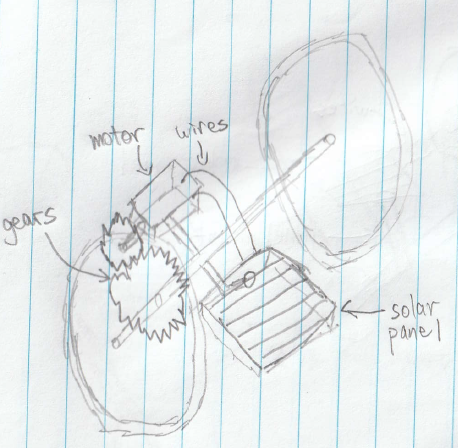 motor
wires
gears
solar
panel